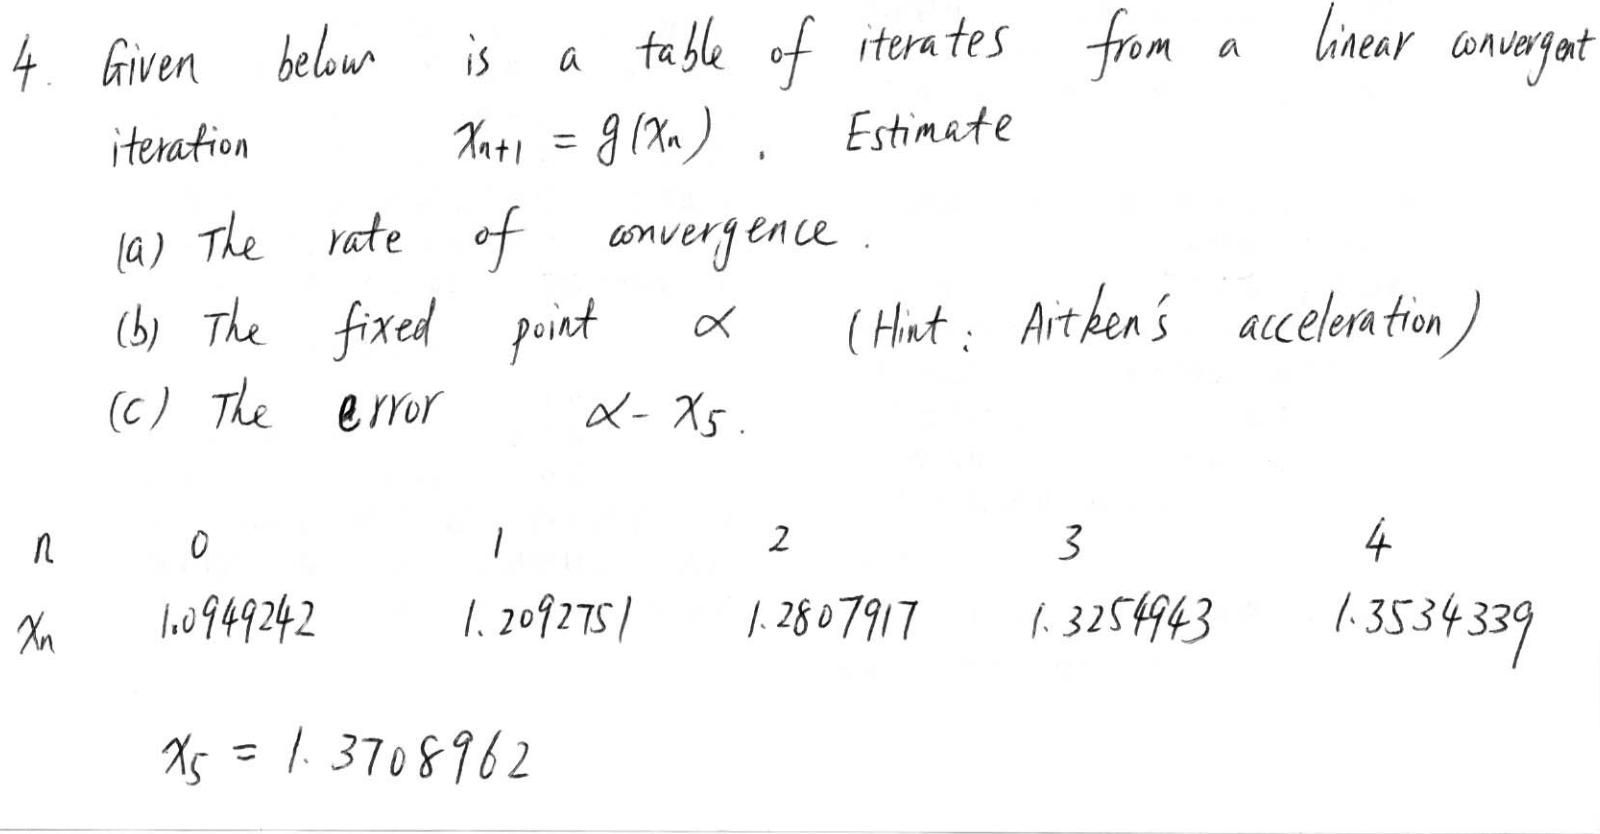 4. Given below is a table of iterates from a linear convergent
iteration xn+1 = g(xn). Estimate
(a) The rate of convergence.
(b) The fixed point α (Hint: Aitken's acceleration)
(c) The error α - x5.
n 0 1 2 3 4
xn 1.0949242 1.2092751 1.2807917 1.3254943 1.3534339
x5 = 1.3708962